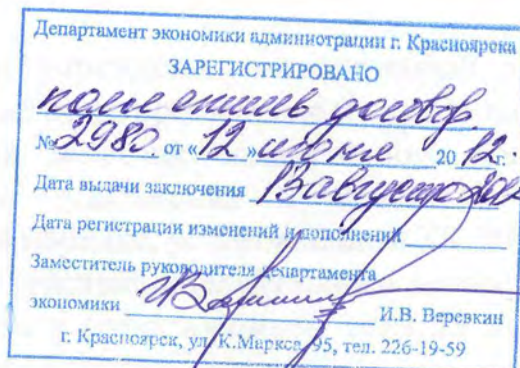 Департамент экономики администрации г. Красноярска
ЗАРЕГИСТРИРОВАНО
коллективн договор
№ 2980. от «12» июня 2012г.
Дата выдачи заключения 13 августа
Дата регистрации изменений и дополнений
Заместитель руководителя департамента
экономики И.В. Веревкин
г. Красноярск, ул. К.Маркса, 95, тел. 226-19-59